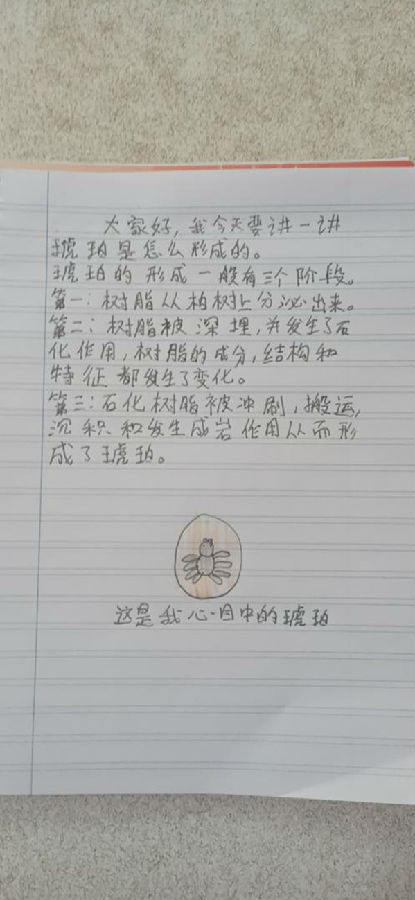 大家好，我今天要讲一讲
琥珀是怎么形成的。
琥珀的形成一般有三个阶段。
第一：树脂从柏树上分泌出来。
第二：树脂被深埋，并发生了石
化作用，树脂的成分，结构和
特征都发生了变化。
第三：石化树脂被冲刷，搬运，
沉积和发生成岩作用从而形
成了琥珀。
这是我心目中的琥珀